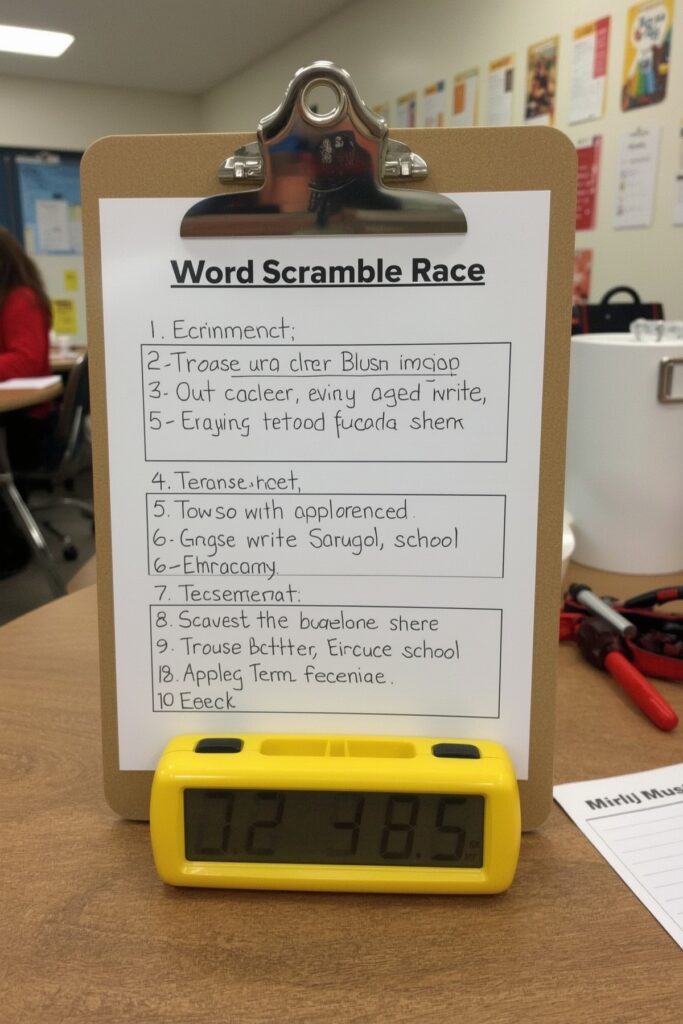 Word Scramble Race
1. Ecrinmenct;
2-Troase ura clrer Blusn imojop
3- Out cacleer, eviny aged write,
5- Erayjing tetood fucada sherk
4. Teranse.hcet,
5. Towso with applorenced.
6- Grgse write Sarugol, school
6-Ehracamy.
7. Tecsemerat:
8. Scavest the bugelone shere
9. Trouse BctHter, Eircuce school
18. Appleg Term feceniae.
10 Eeeck
38.5
Mirlij Mus